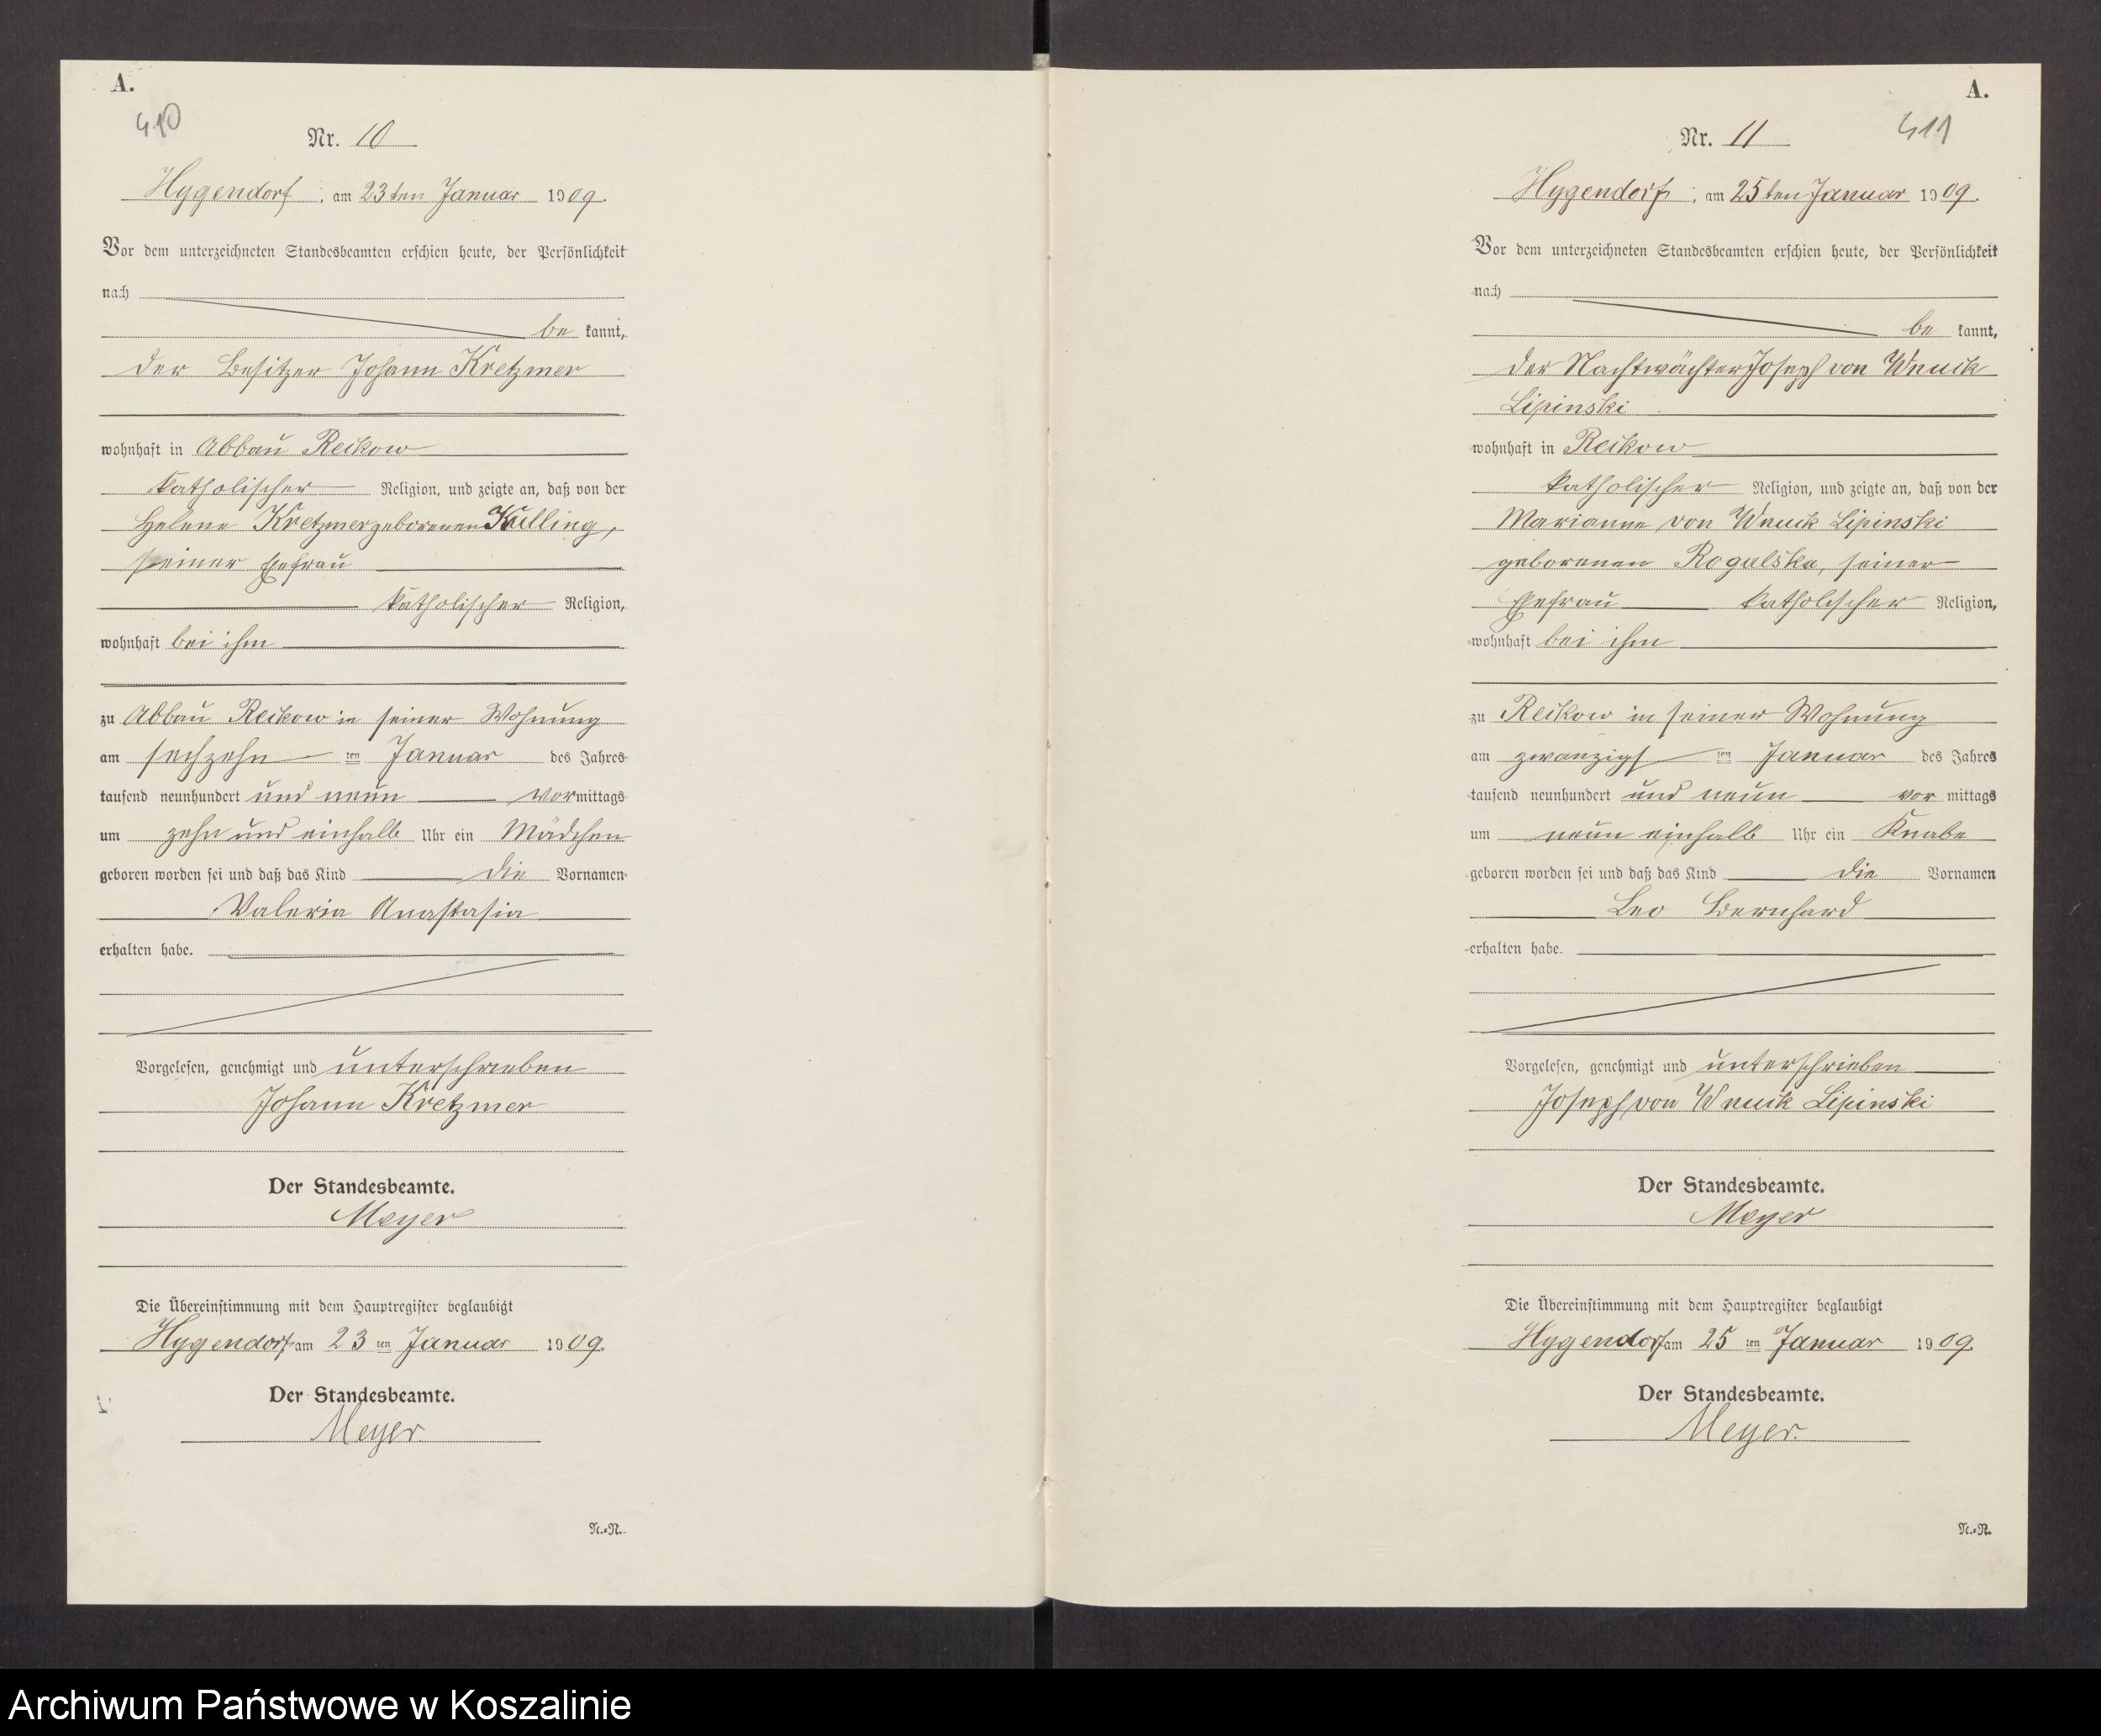 A.
410
Nr. 10
Hygendorf, am 23ten Januar 1909.
Vor dem unterzeichneten Standesbeamten erschien heute, der Persönlichkeit
nach
be kannt,
der Besitzer Johann Kretzmer
wohnhaft in Abbau Reckow
katholischer Religion, und zeigte an, daß von der
Helene Kretzmer geborenen Kulling,
seiner Ehefrau
katholischer Religion,
wohnhaft bei ihm
zu Abbau Reckow in seiner Wohnung
am sechzehn ten Januar des Jahres
tausend neunhundert und neun vormittags
um zehn und einhalb Uhr ein Mädchen
geboren worden sei und daß das Kind die Vornamen
Valeria Anastasia
erhalten habe.
Vorgelesen, genehmigt und unterschrieben
Johann Kretzmer
Der Standesbeamte.
Meyer
Die Übereinstimmung mit dem Hauptregister beglaubigt
Hygendorf am 23 ten Januar 1909.
Der Standesbeamte.
Meyer
N.=R.
A.
411
Nr. 11
Hygendorf, am 25ten Januar 1909.
Vor dem unterzeichneten Standesbeamten erschien heute, der Persönlichkeit
nach
be kannt,
der Nachtwächter Joseph von Wnuck
Lipinski
wohnhaft in Reckow
katholischer Religion, und zeigte an, daß von der
Marianne von Wnuck Lipinski
geborenen Rogalska, seiner
Ehefrau katholischer Religion,
wohnhaft bei ihm
zu Reckow in seiner Wohnung
am zwanzigs ten Januar des Jahres
tausend neunhundert und neun vor mittags
um neun einhalb Uhr ein Knabe
geboren worden sei und daß das Kind die Vornamen
Leo Bernhard
erhalten habe.
Vorgelesen, genehmigt und unterschrieben
Joseph von Wnuck Lipinski
Der Standesbeamte.
Meyer
Die Übereinstimmung mit dem Hauptregister beglaubigt
Hygendorf am 25 ten Januar 1909.
Der Standesbeamte.
Meyer.
N.=R.
Archiwum Państwowe w Koszalinie